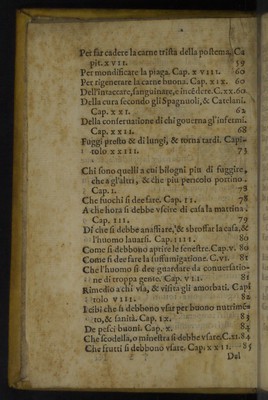 Per far cadere la carne trista della postema. Ca
pit. xvii. 59
Per mondificare la piaga. Cap. xviii. 60
Per rigenerare la carne buona. Cap. xix. 60
Dell'intaccare, sanguinare, e incēdere. C. xx. 60
Della cura secondo gli Spagnuoli, & Catelani.
Cap. xxi. 62
Della conseruatione di chi gouerna gl'infermi.
Cap. xxii. 68
Fuggi presto & di lungi, & torna tardi. Capi-
tolo xxiii. 73
Chi sono quelli a cui bisogni piu di fuggire,
che a gl'altri, & che piu pericolo portino.
Cap. i. 78
Che fuochi si dee fare. Cap. ii. 78
A che hora si debbe vscire di casa la mattina.
Cap. iii. 79
Di che si debbe anaffiare, & sbroffar la casa, &
l'huomo lauarsi. Cap. iiii. 80
Come si debbono aprire le fenestre. Cap. v. 80
Come si dee fare la suffumigatione. C. vi. 81
Che l'huomo si dee guardare da conuersatio-
ne di troppa gente. Cap. vii. 81
Rimedio a chi vsa, & visita gli amorbati. Capi
tolo viii. 82
I cibi che si debbono vsar per buono nutrimē-
to, & sanità. Cap. ix. 83
De pesci buoni. Cap. x. 84
Che scodella, o minestra si debbe vsare. C. xi. 84
Che frutti si debbono vsare. Cap. xii. 85
Del